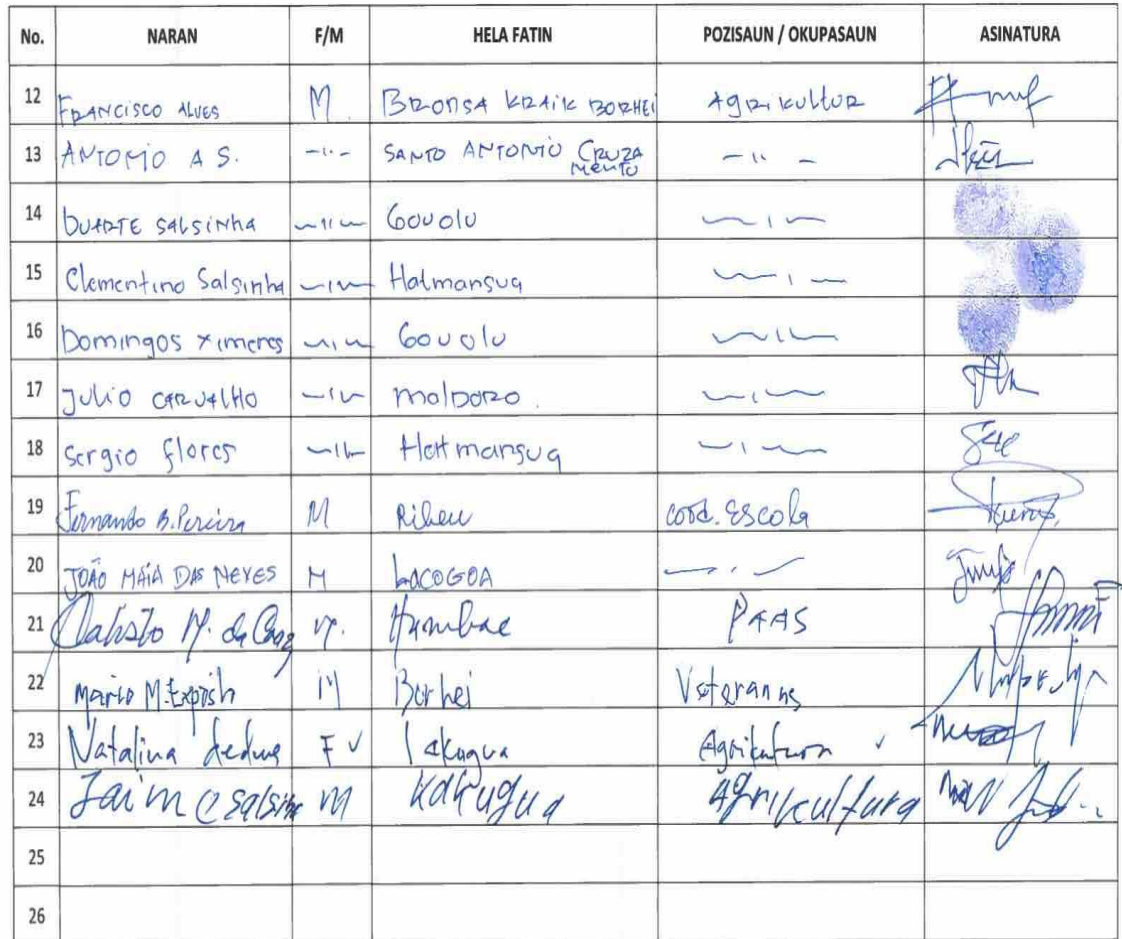 No. NARAN F/M HELA FATIN POZISAUN / OKUPASAUN ASINATURA
12 FRANCISCO ALVES M. BRONSA KRAIK BORHEI AGRIKULTUR
13 ANTONIO A S. -"- SANTO ANTONIO CRUZA -"-
MENTO
14 DUARTE SALSINHA -"- Gouolu -"-
15 Clementino Salsinha -"- Hatmansua -"-
16 Domingos Ximenes -"- Gouolu -"-
17 JULIO CARVALHO -"- MOLDORO. -"-
18 Sergio flores -"- Hatmansua -"-
19 Fernando B. Pereira M Riheu cord. Escola
20 JOÃO MAIA DAS NEVES M LACOGOA -"-
21 M. da Cruz M. Humbae PAAS
22 Mario M. Exposh M Borhei Veteranus
23 Natalina F Lakugua
24 Jaime salsinha M Kakugua Agrikcultura
25
26